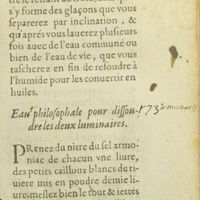 te refuant au
s'y forme des glaçons que vous
separerez par inclination, &
qu'aprés vous lauerez plusieurs
fois auec de l'eau commune ou
bien de l'eau de vie, que vous
tascherez en fin de resoudre à
l'humide pour les conuertir en
huiles.
Eau philosophale pour dissou-
dre les deux luminaires.
PRenez du nitre du sel armo-
niac de chacun vne liure,
des petits cailloux blancs de ri-
uiere mis en poudre demie li-
ures meslez bien le tout & iettés